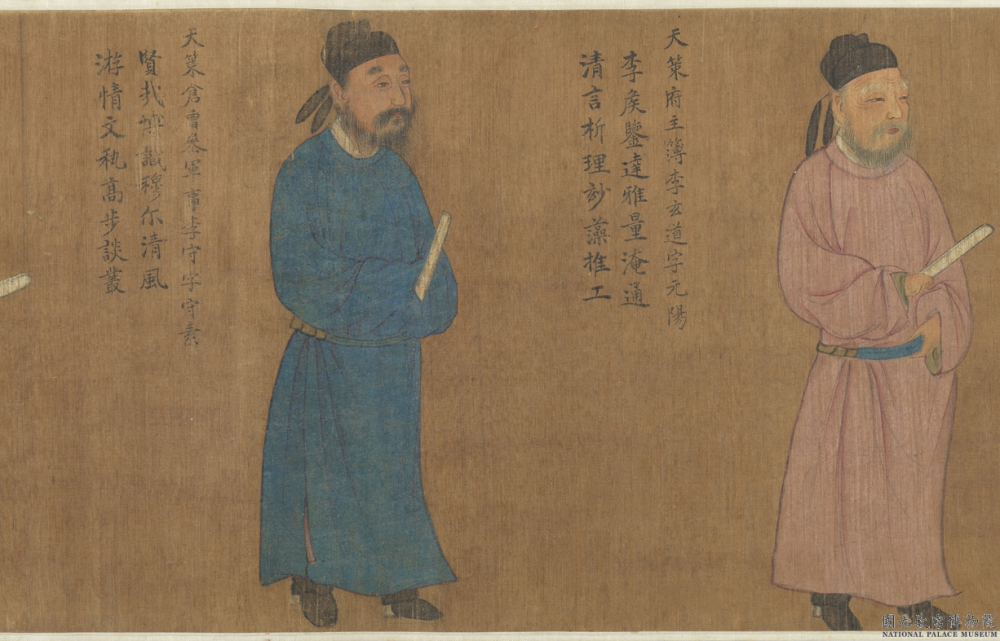 天策府主簿李玄道字元陽
李矦鑒達雅量淹通
清言析理玅藻推工
天策倉曹叅軍事李守字守素
賢㦲 識穆尔清風
游情文秇高步談叢
國立故宮博物院
NATIONAL PALACE MUSEUM